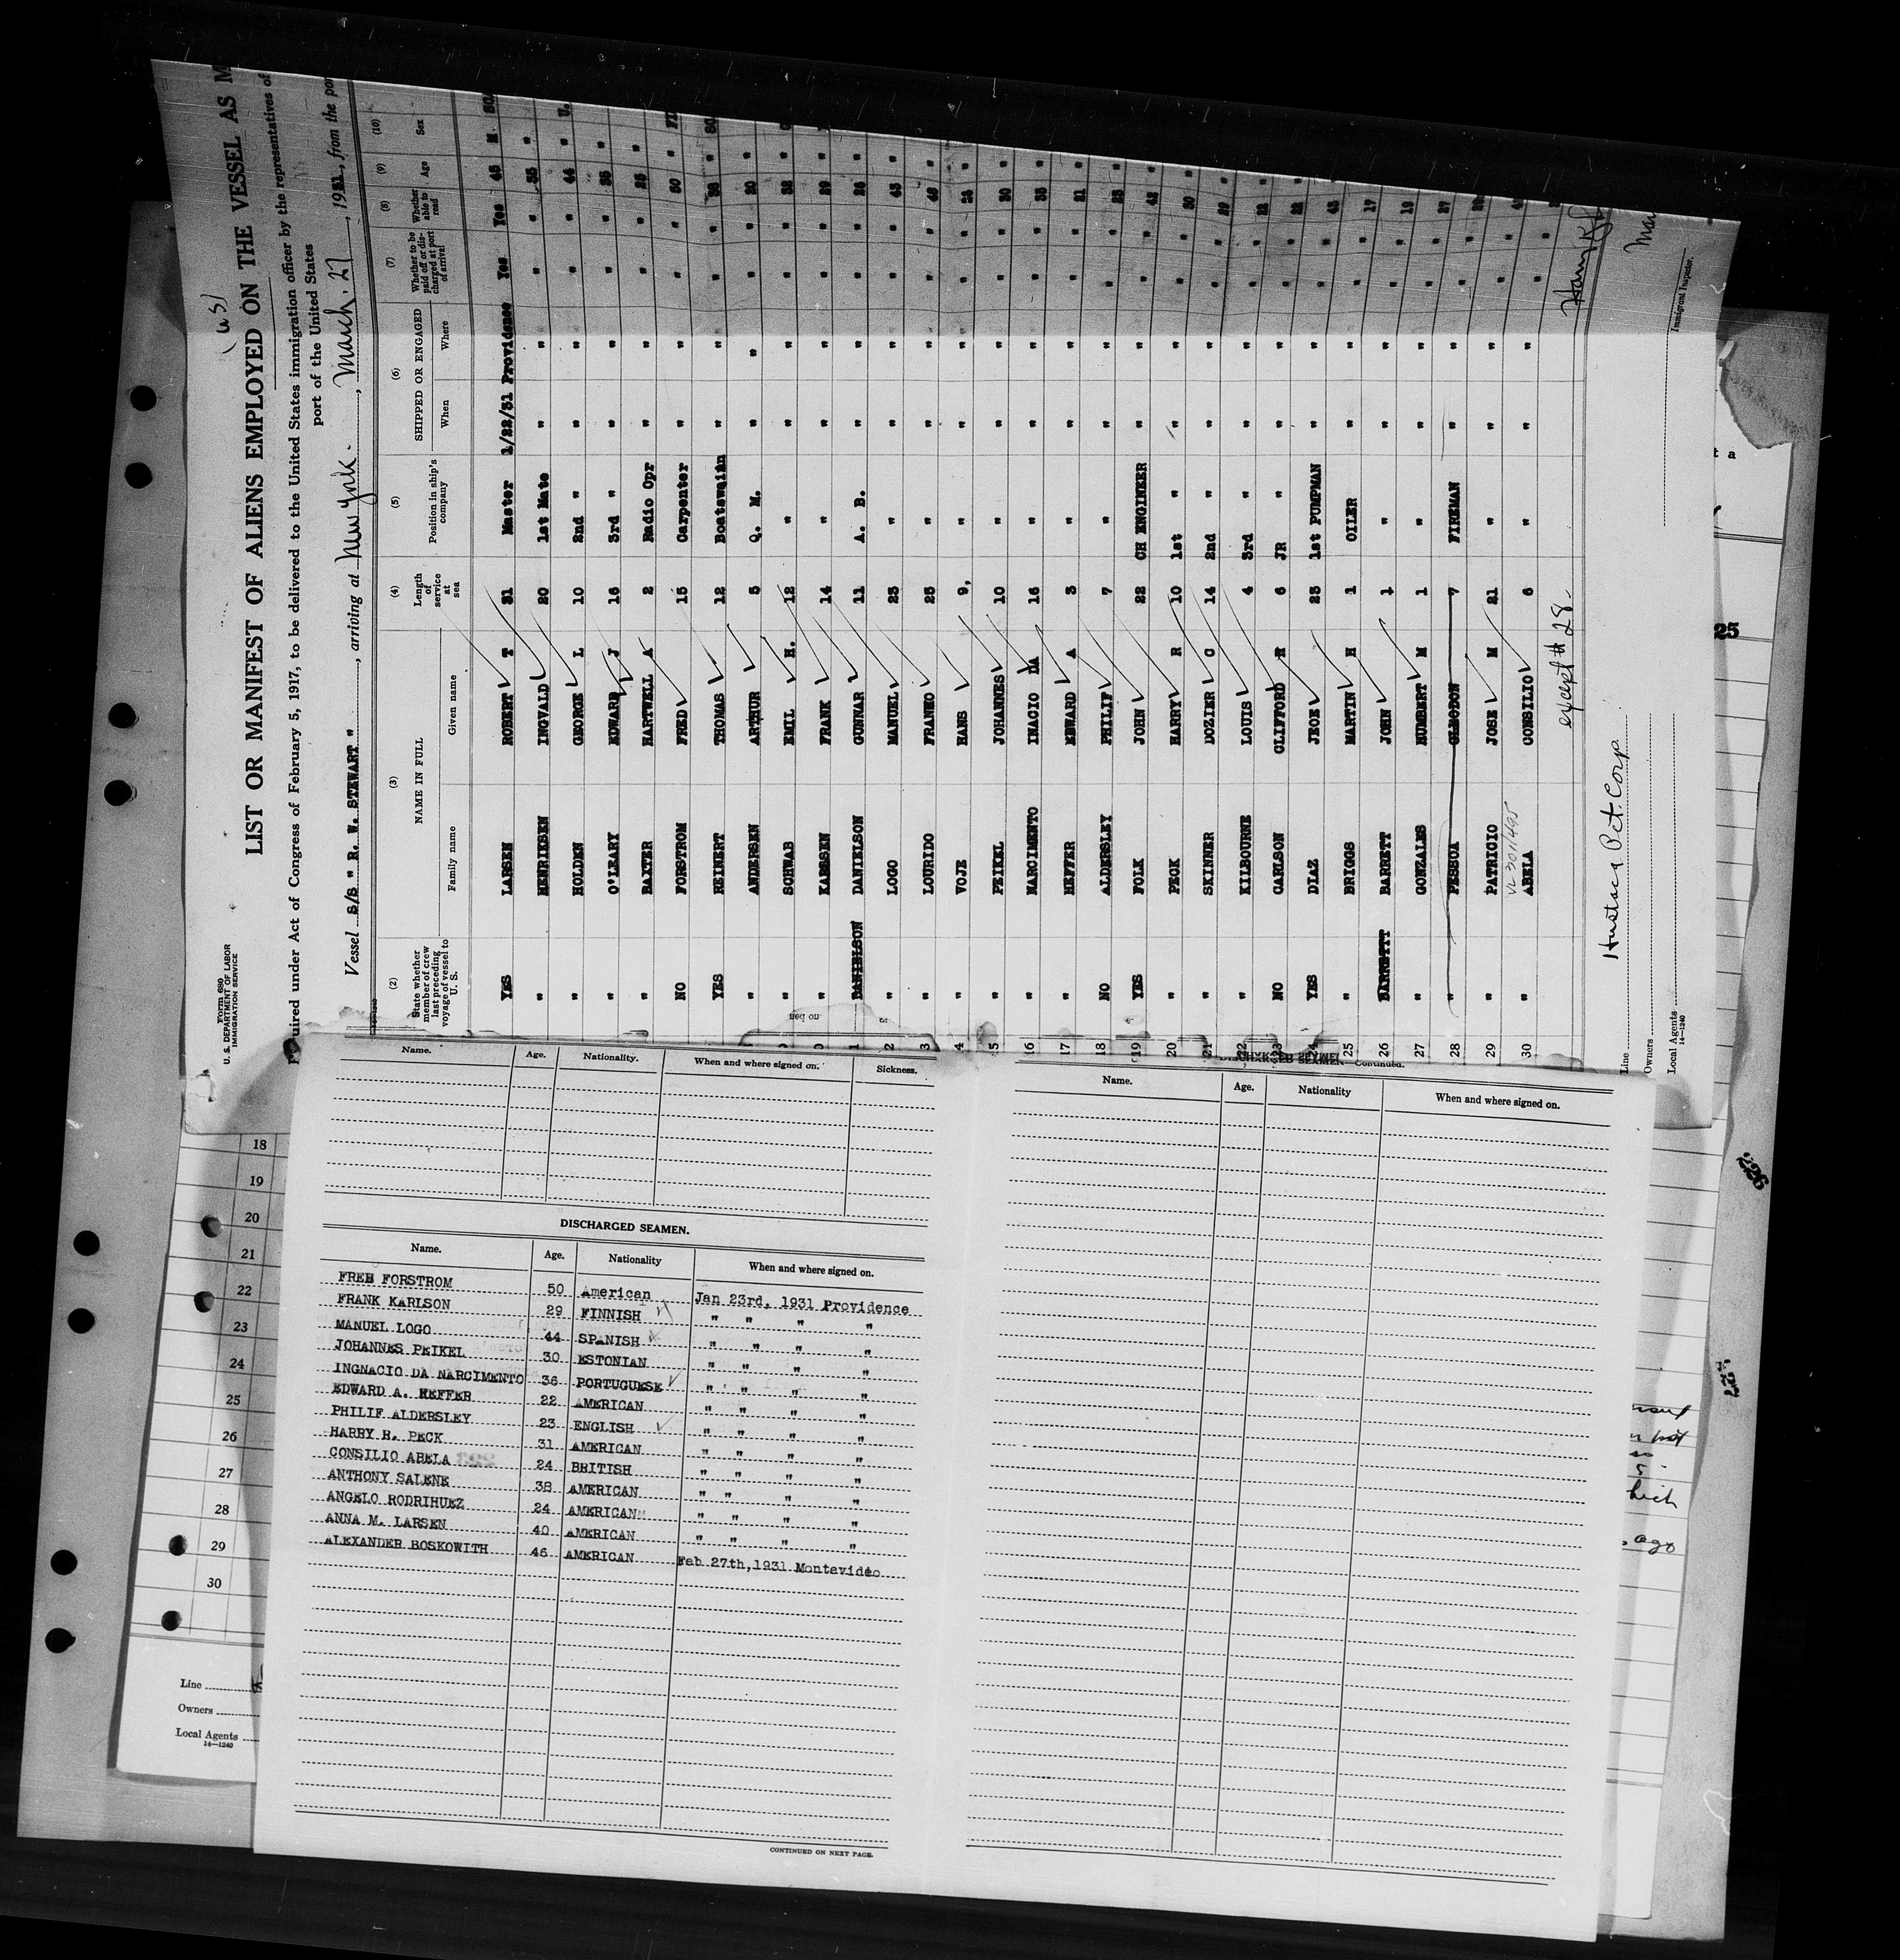 (US)
Form 680
U. S. DEPARTMENT OF LABOR
IMMIGRATION SERVICE
LIST OR MANIFEST OF ALIENS EMPLOYED ON THE VESSEL AS M
uired under Act of Congress of February 5, 1917, to be delivered to the United States immigration officer by the representatives of
port of the United States
Vessel S/S " R. W. STEWART ", arriving at New York, March 27, 1931, from the por
(2) (3) (4) (5) (6) (7) (8) (9) (10)
State whether member of crew last preceding voyage of vessel to U. S. NAME IN FULL Family name Given name Length of service at sea Position in ship's company SHIPPED OR ENGAGED When Where Whether to be paid off or discharged at port of arrival Whether able to read Age Sex
YES LARSEN ROBERT T 31 Master 1/22/31 Providence Yes Yes 45 M
" HENRIKSEN INGVALD 20 1st Mate " " " " 35 "
" HOLDEN GEORGE L 10 2nd " " " " " 44 "
" O'LEARY EDWARD J 16 3rd " " " " " 35 "
" BAXTER HARTWELL A 2 Radio Opr " " " " 25 "
NO FORSTROM FRED 15 Carpenter " " " " 50 "
YES REINERT THOMAS 12 Boatswain " " " " 38 "
" ANDERSEN ARTHUR 5 Q. M. " " " " 20 "
" SCHWAB EMIL H. 12 " " " " " 32 "
" KARSSEN FRANK 14 " " " " " 29 "
1 DANIELSON DANIELSON GUNNAR 11 A. B. " " " " 26 "
2 " LOGO MANUEL 23 " " " " " 43 "
3 " LOURIDO FRANKO 25 " " " " " 46 "
4 " VOJE HANS 9, " " " " " 26 "
15 " PEIKEL JOHANNES 10 " " " " " 30 "
16 " NARCIMENTO INACIO DA 16 " " " " " 35 "
17 " HEFFER EDWARD A 3 " " " " " 21 "
18 NO ALDERSLEY PHILIF 7 " " " " " 23 "
19 YES FOLK JOHN 22 CH ENGINEER " " " " 42 "
20 " PECK HARRY R 10 1st " " " " " 30 "
21 " SKINNER DOZIER C 14 2nd " " " " " 29 "
22 " KILBOURNE LOUIS 4 3rd " " " " " 22 "
23 NO CARLSON CLIFFORD R 6 JR " " " " " 22 "
24 YES DIAZ JEOE 23 1st PUMPMAN " " " " 43 "
25 " BRIGGS MARTIN H 1 OILER " " " " 17 "
26 BARRETT BARRETT JOHN 1 " " " " " 18 "
27 " GONZALES HUMBERT M 1 " " " " " 18 "
28 " PESSOA CLEODON 7 FIREMAN " " " " 27 "
29 " PATRICIO JOSE M 21 " " " " "
30 " ABELA CONSILIO 6 " " " " "
except # 28.
Line Huasteca Pet. Corp.
Owners
Local Agents
14—1240
Immigrant Inspector.
Name. Age. Nationality. When and where signed on. Sickness.
DISCHARGED SEAMEN.
Name. Age. Nationality When and where signed on.
FRED FORSTROM 50 American Jan 23rd, 1931 Providence
FRANK KARLSON 29 FINNISH " " " "
MANUEL LOGO 44 SPANISH " " " "
JOHANNES PEIKEL 30 ESTONIAN " " " "
INGNACIO DA NARCIMENTO 36 PORTUGUESE " " " "
EDWARD A. HEFFER 22 AMERICAN " " " "
PHILIF ALDERSLEY 23 ENGLISH " " " "
HARRY R. PECK 31 AMERICAN " " " "
CONSILIO ABELA 24 BRITISH " " " "
ANTHONY SALENE 38 AMERICAN " " " "
ANGELO RODRIHUEZ 24 AMERICAN " " " "
ANNA M. LARSEN 40 AMERICAN " " " "
ALEXANDER BOSKOWITH 46 AMERICAN Feb 27th, 1931 Montevideo
CONTINUED ON NEXT PAGE.
DISCHARGED SEAMEN—Continued.
Name. Age. Nationality When and where signed on.
18
19
20
21
22
23
24
25
26
27
28
29
30
Line
Owners
Local Agents
14—1240
25
hich
ago